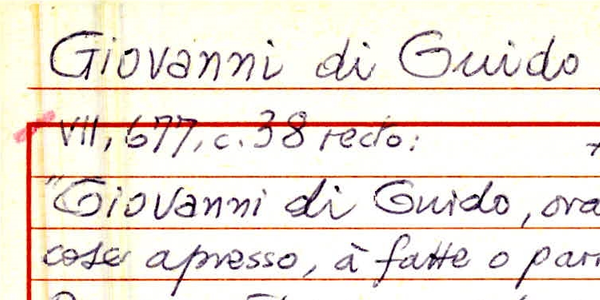 Giovanni di Guido
VII, 677, c. 38 recto:
"Giovanni di Guido, ora
cose apresso, à fatte o parr